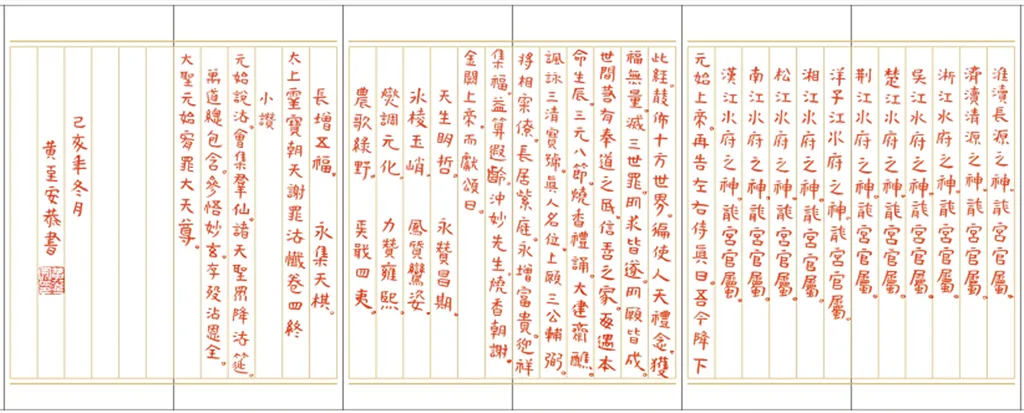 淮瀆長源之神。龍宮官屬。
濟瀆清源之神。龍宮官屬。
浙江水府之神。龍宮官屬。
吳江水府之神。龍宮官屬。
楚江水府之神。龍宮官屬。
荆江水府之神。龍宮官屬。
洋子江水府之神。龍宮官屬。
湘江水府之神。龍宮官屬。
松江水府之神。龍宮官屬。
南江水府之神。龍宮官屬。
漢江水府之神。龍宮官屬。
元始上帝。再告左右侍真曰。吾今降下
此經。散佈十方世界。徧使人天禮念。獲
福無量。滅三世罪。所求皆遂。所願皆成。
世間若有奉道之民。信吾之家。每遇本
命生辰。三元八節。燒香禮誦。大建齋醮。
諷詠三清寶號。真人名位。上願三公輔弼。
將相寀僚。長居紫庭。永增富貴。迎祥
集福。益算遐齡。沖妙先生。燒香朝謝。
金闕上帝。而獻頌曰。
天生明哲。 永贊昌期。
冰稜玉峭。 鳳質鸞姿。
燮調元化。 力贊雍熙。
農歌綠野。 奚戢四夷。
長增五福。 永集天祺。
太上靈寶朝天謝罪法懺卷四終
小讚
元始說法。會集羣仙。諸天聖眾降法筵。
萬道總包含。參悟妙玄。李發沾恩全。
大聖元始宥罪大天尊。
己亥年冬月
黃至安恭書